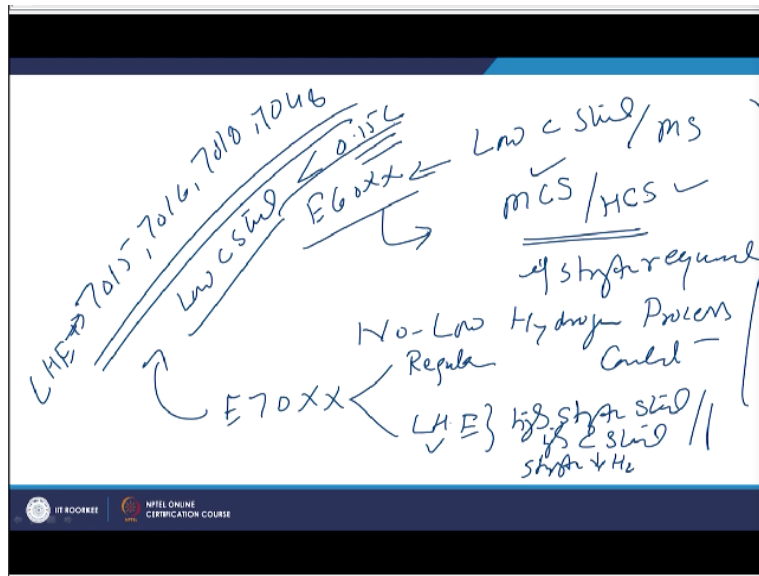 LHE → 7015, 7016, 7018, 7048
Low C Steel < 0.15C
E60XX ← Low C Steel / MS
MCS / HCS ✓
if required
No-Low Hydrogen Process
Regular
E70XX
LHE } High Steel //
C Steel
↓ H2
IIT ROORKEE
NPTEL ONLINE
CERTIFICATION COURSE